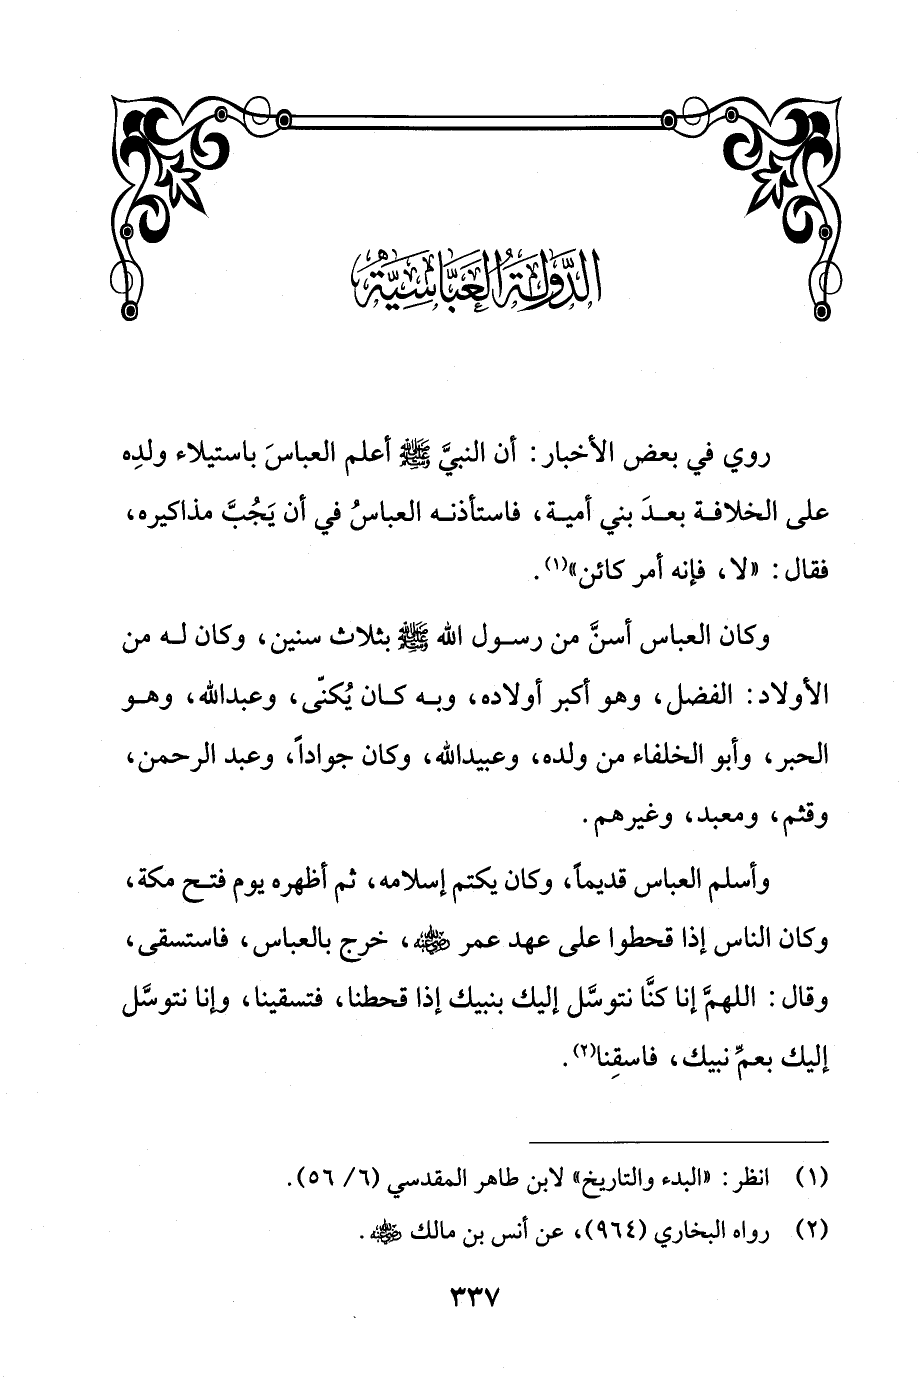 الدَّولَةُ العَبَّاسِيَّةُ
روي في بعض الأخبار: أن النبيَّ ﷺ أعلم العباسَ باستيلاء ولدِه
على الخلافة بعدَ بني أمية، فاستأذنه العباسُ في أن يَجُبَّ مذاكيره،
فقال: «لا، فإنه أمر كائن»(١).
وكان العباس أسنَّ من رسول الله ﷺ بثلاث سنين، وكان له من
الأولاد: الفضل، وهو أكبر أولاده، وبه كان يُكنّى، وعبدالله، وهو
الحبر، وأبو الخلفاء من ولده، وعبيدالله، وكان جواداً، وعبد الرحمن،
وقثم، ومعبد، وغيرهم.
وأسلم العباس قديماً، وكان يكتم إسلامه، ثم أظهره يوم فتح مكة،
وكان الناس إذا قحطوا على عهد عمر رضي الله عنه، خرج بالعباس، فاستسقى،
وقال: اللهمَّ إنا كنَّا نتوسَّل إليك بنبيك إذا قحطنا، فتسقينا، وإنا نتوسَّل
إليك بعمِّ نبيك، فاسقِنا(٢).
(١) انظر: «البدء والتاريخ» لابن طاهر المقدسي (٦/ ٥٦).
(٢) رواه البخاري (٩٦٤)، عن أنس بن مالك رضي الله عنه.
٣٣٧